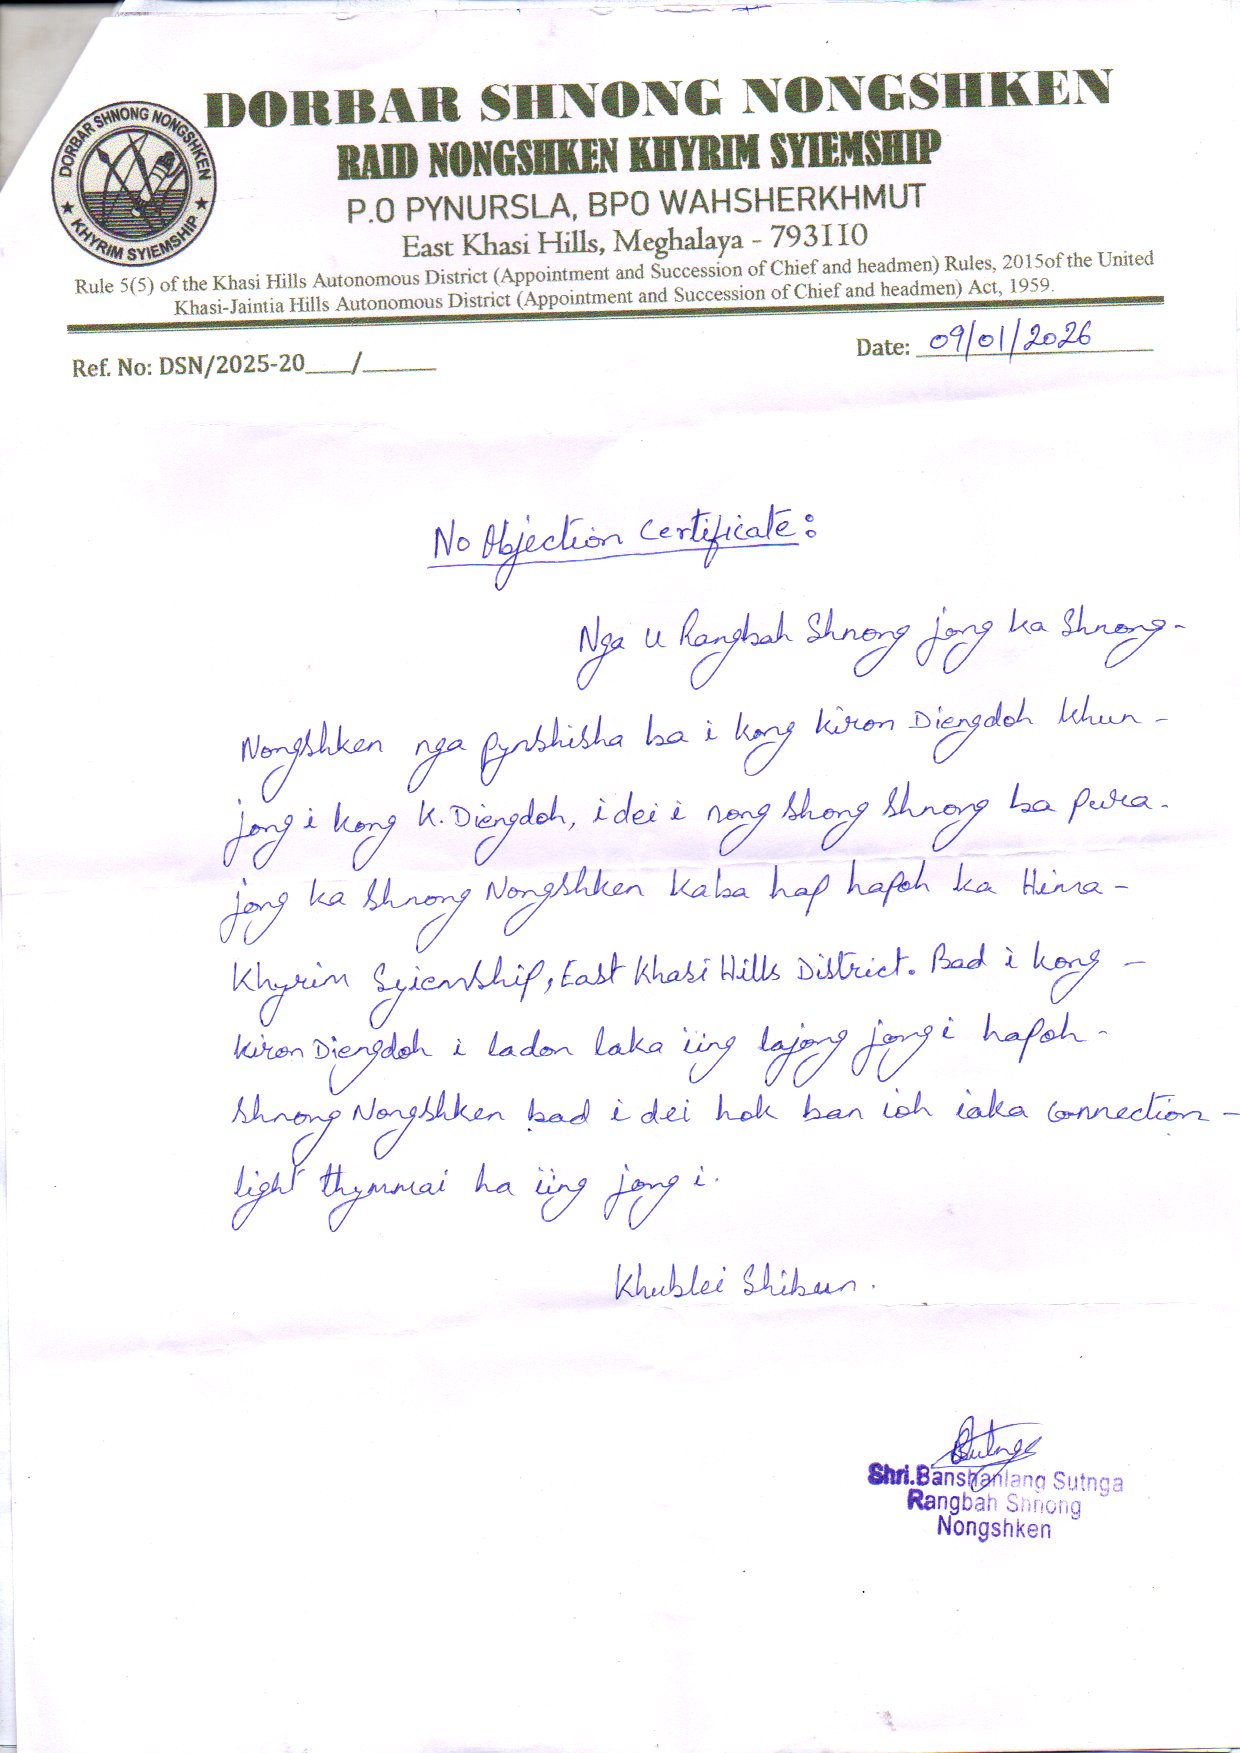 DORBAR SHNONG NONGSHKEN
RAID NONGSHKEN KHYRIM SYIEMSHIP
P.O PYNURSLA, BPO WAHSHERKHMUT
East Khasi Hills, Meghalaya - 793110
Rule 5(5) of the Khasi Hills Autonomous District (Appointment and Succession of Chief and headmen) Rules, 2015of the United
Khasi-Jaintia Hills Autonomous District (Appointment and Succession of Chief and headmen) Act, 1959.
DORBAR SHNONG NONGSHKEN
★ KHYRIM SYIEMSHIP ★
Ref. No: DSN/2025-20___/______
Date: 09/01/2026
No Objection Certificate:
Nga u Rangbah Shnong jong ka Shnong-
Nongshken nga pynshisha ba i kong Kiron Diengdoh khun -
jong i kong K. Diengdoh, i dei i nong shong shnong ba pura-
jong ka Shnong Nongshken kaba hap hapoh ka Hima -
Khyrim Syiemship, East Khasi Hills District. Bad i kong -
Kiron Diengdoh i ladon laka iing lajong jong i hapoh -
Shnong Nongshken bad i dei hok ban ioh iaka connection -
light thymmai ha iing jong i.
Khublei Shibun.
Shri.Banshanlang Sutnga
Rangbah Shnong
Nongshken